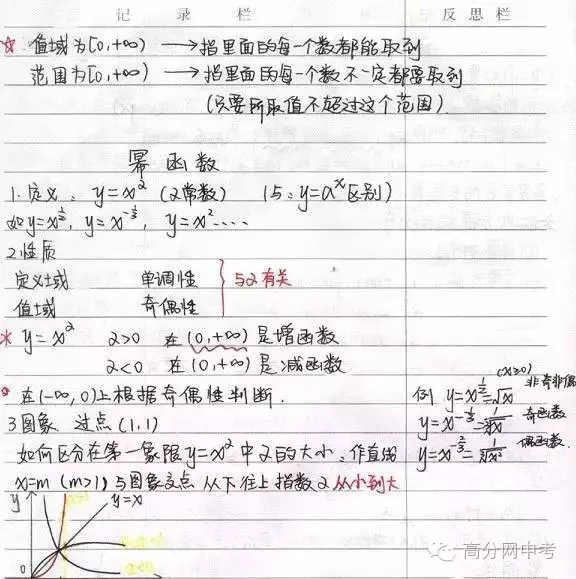 记录栏 反思栏
☆ 值域为[0,+∞) ⟶指里面的每一个数都能取到
范围为[0,+∞) ⟶指里面的每一个数不一定都要取到
(只要所取值不超过这个范围).
幂函数
1.定义: y=x^α (α常数) (与:y=a^x区别)
如y=x^{1/2}, y=x^{-1/3}, y=x^2....
2.性质
定义域 单调性
值域 奇偶性
} 与α有关
* y=x^α α>0 在(0,+∞)是增函数
α<0 在(0,+∞)是减函数
* 在(-∞,0)上根据奇偶性判断.
3图象. 过点(1,1)
如何区分在第一象限y=x^α中α的大小,作直线
x=m (m>1)与图象交点 从下往上指数α从小到大
y y=x
0
例 y=x^{1/2}=√x (x≥0) 非奇非偶
奇函数
偶函数.
高分网中考